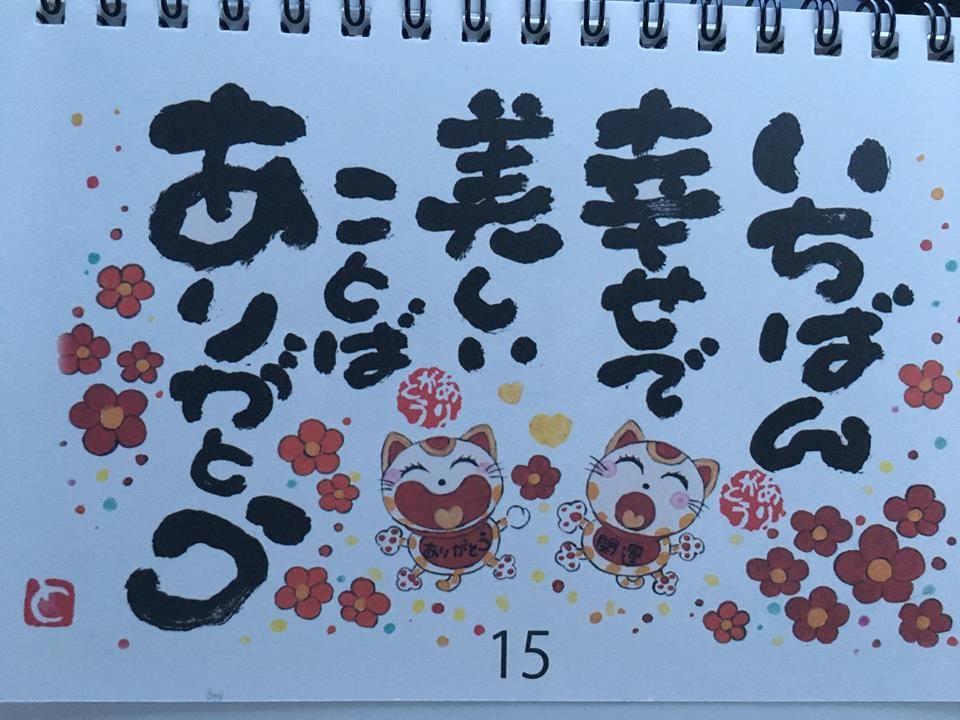 いちばん
幸せで
美しい
ことば
ありがとう
ありがとう
ありがとう
開運
ありがとう
15